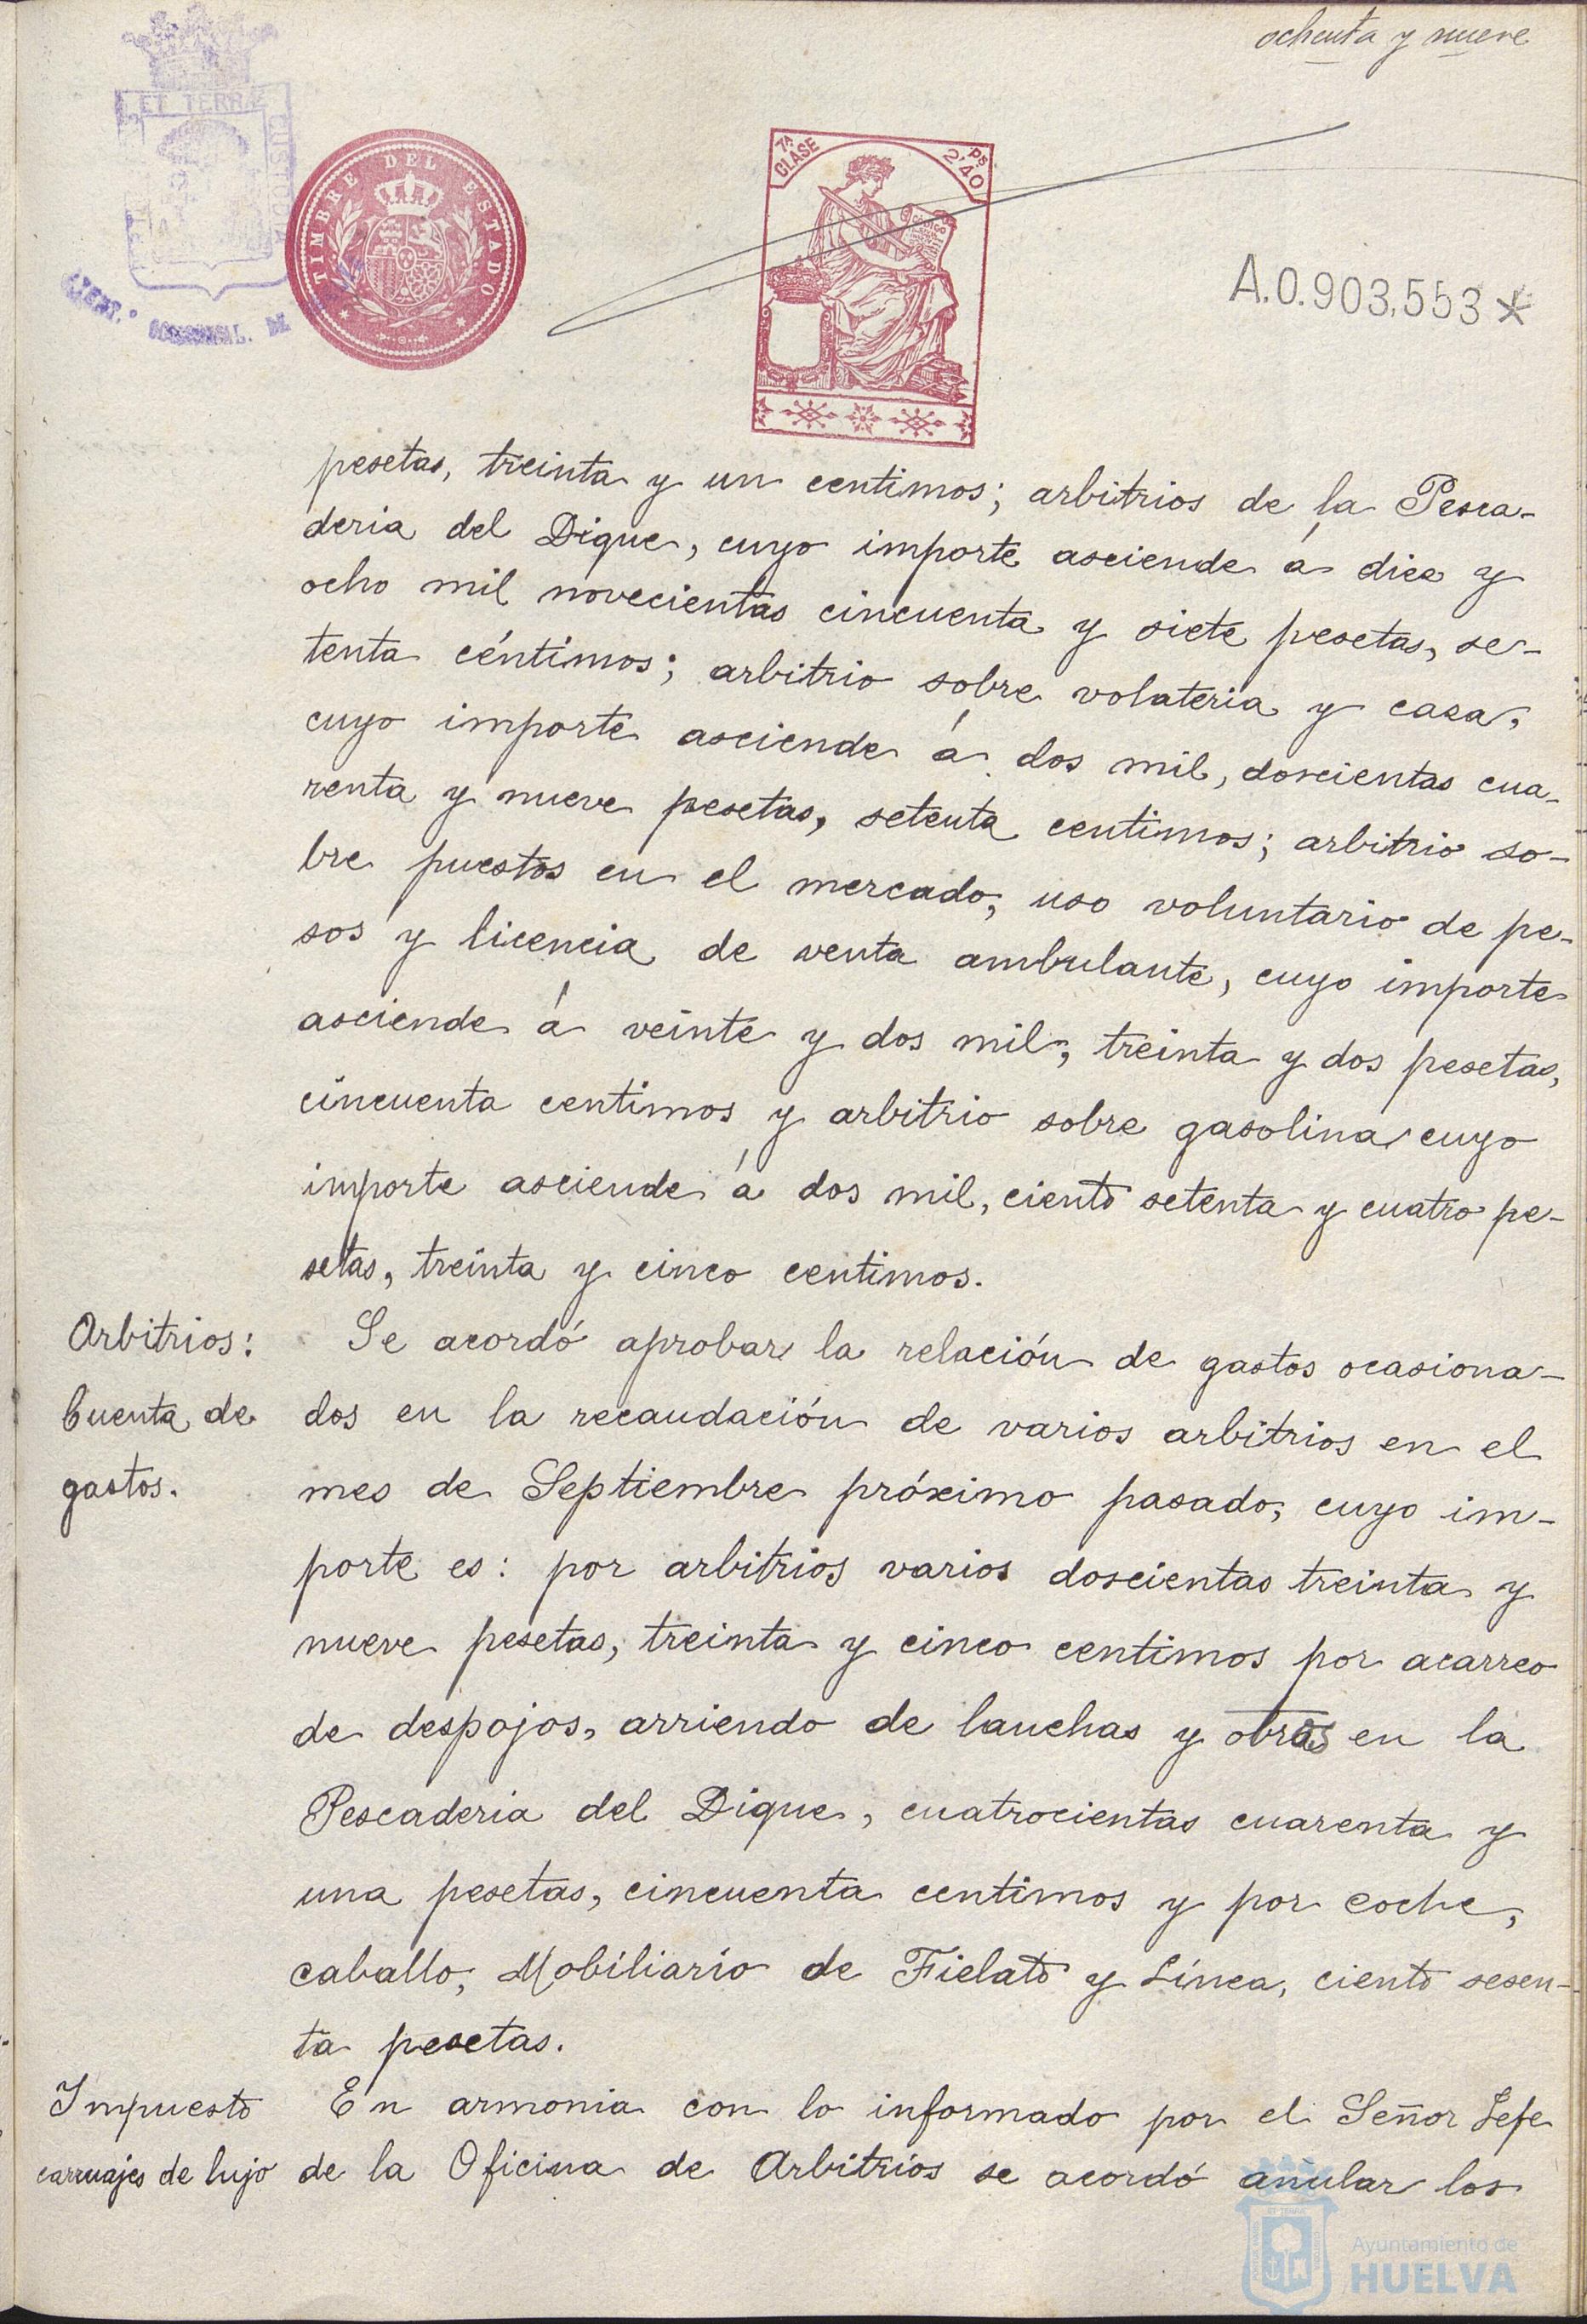 ochenta y nueve
ET TERRÆ
TIMBRE DEL ESTADO
7ª CLASE
2'40 Ps
A.0.903,553*
pesetas, treinta y un centimos; arbitrios de la Pesca-
deria del Dique, cuyo importe asciende á diez y
ocho mil novecientas cincuenta y siete pesetas, se-
tenta céntimos; arbitrio sobre volateria y caza,
cuyo importe asciende á dos mil, doscientas cua-
renta y nueve pesetas, setenta centimos; arbitrio so-
bre puestos en el mercado, uso voluntario de pe-
sos y licencia de venta ambulante, cuyo importe
asciende á veinte y dos mil, treinta y dos pesetas,
cincuenta centimos y arbitrio sobre gasolina cuyo
importe asciende á dos mil, ciento setenta y cuatro pe-
setas, treinta y cinco centimos.
Arbitrios: Se acordó aprobar la relación de gastos ocasiona-
Cuenta de dos en la recaudación de varios arbitrios en el
gastos. mes de Septiembre próximo pasado, cuyo im-
porte es: por arbitrios varios doscientas treinta y
nueve pesetas, treinta y cinco centimos por acarreo
de despojos, arriendo de lanchas y obras en la
Pescaderia del Dique, cuatrocientas cuarenta y
una pesetas, cincuenta centimos y por coche,
caballo, Mobiliario de Fielato y Línea, ciento sesen-
ta pesetas.
Impuesto En armonia con lo informado por el Señor Jefe
carruajes de lujo de la Oficina de Arbitrios se acordó anular los
Ayuntamiento de
HUELVA